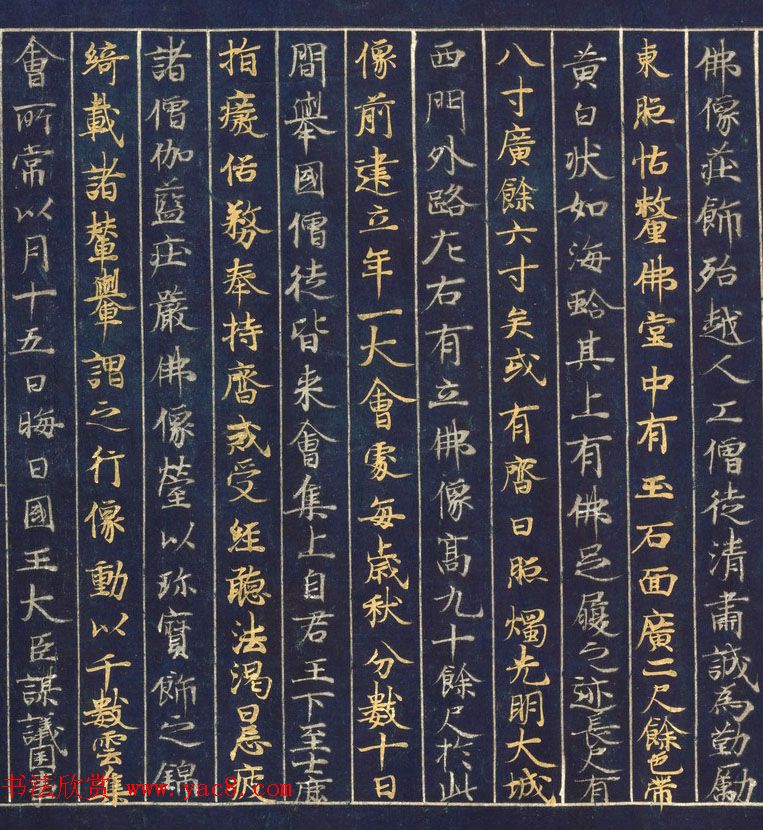 佛像莊飾殆越人工僧徒清肅誠為勤勵
東照怙釐佛堂中有玉石面廣二尺餘色帶
黃白狀如海蛤其上有佛足履之迹長尺有
八寸廣餘六寸矣或有齋日照燭光明大城
西門外路左右有立佛像高九十餘尺於此
像前建立年一大會處每歲秋分數十日
間舉國僧徒皆来會集上自君王下至士庶
捐癈俗務奉持齋戒受經聽法渴日忘疲
諸僧伽藍莊嚴佛像瑩以珎寶飾之錦
綺載諸輦輿謂之行像動以千數雲集
會所常以月十五日晦日國王大臣謀議國事
书法欣赏 www.yac8.com